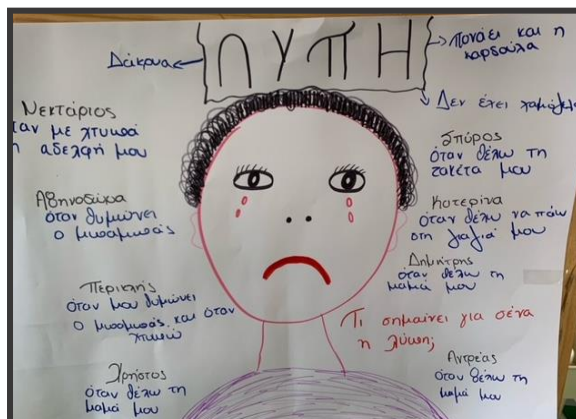 ΛΥΠΗ
Δάκρυα
πονάει και η
καρδούλα
Δεν έχει χαμόγελο
Νεκτάριος
ταν με χτυπά
η αδελφή μου
Αθηνοδώρα
όταν θυμώνει
ο μπαμπάς
Περικλής
όταν μου θυμώνει
ο μπαμπάς και όταν
χτυπάω
Χρήστος
όταν θέλω τη
μαμά μου
Σπύρος
όταν θέλω τη
ζακέτα μου
Κατερίνα
όταν θέλω να πάω
στη γιαγιά μου
Δημήτρης
όταν θέλω τη
μαμά μου
Τι σημαίνει για σένα
η λύπη;
Αντρέας
όταν θέλω τη
μαμά μου